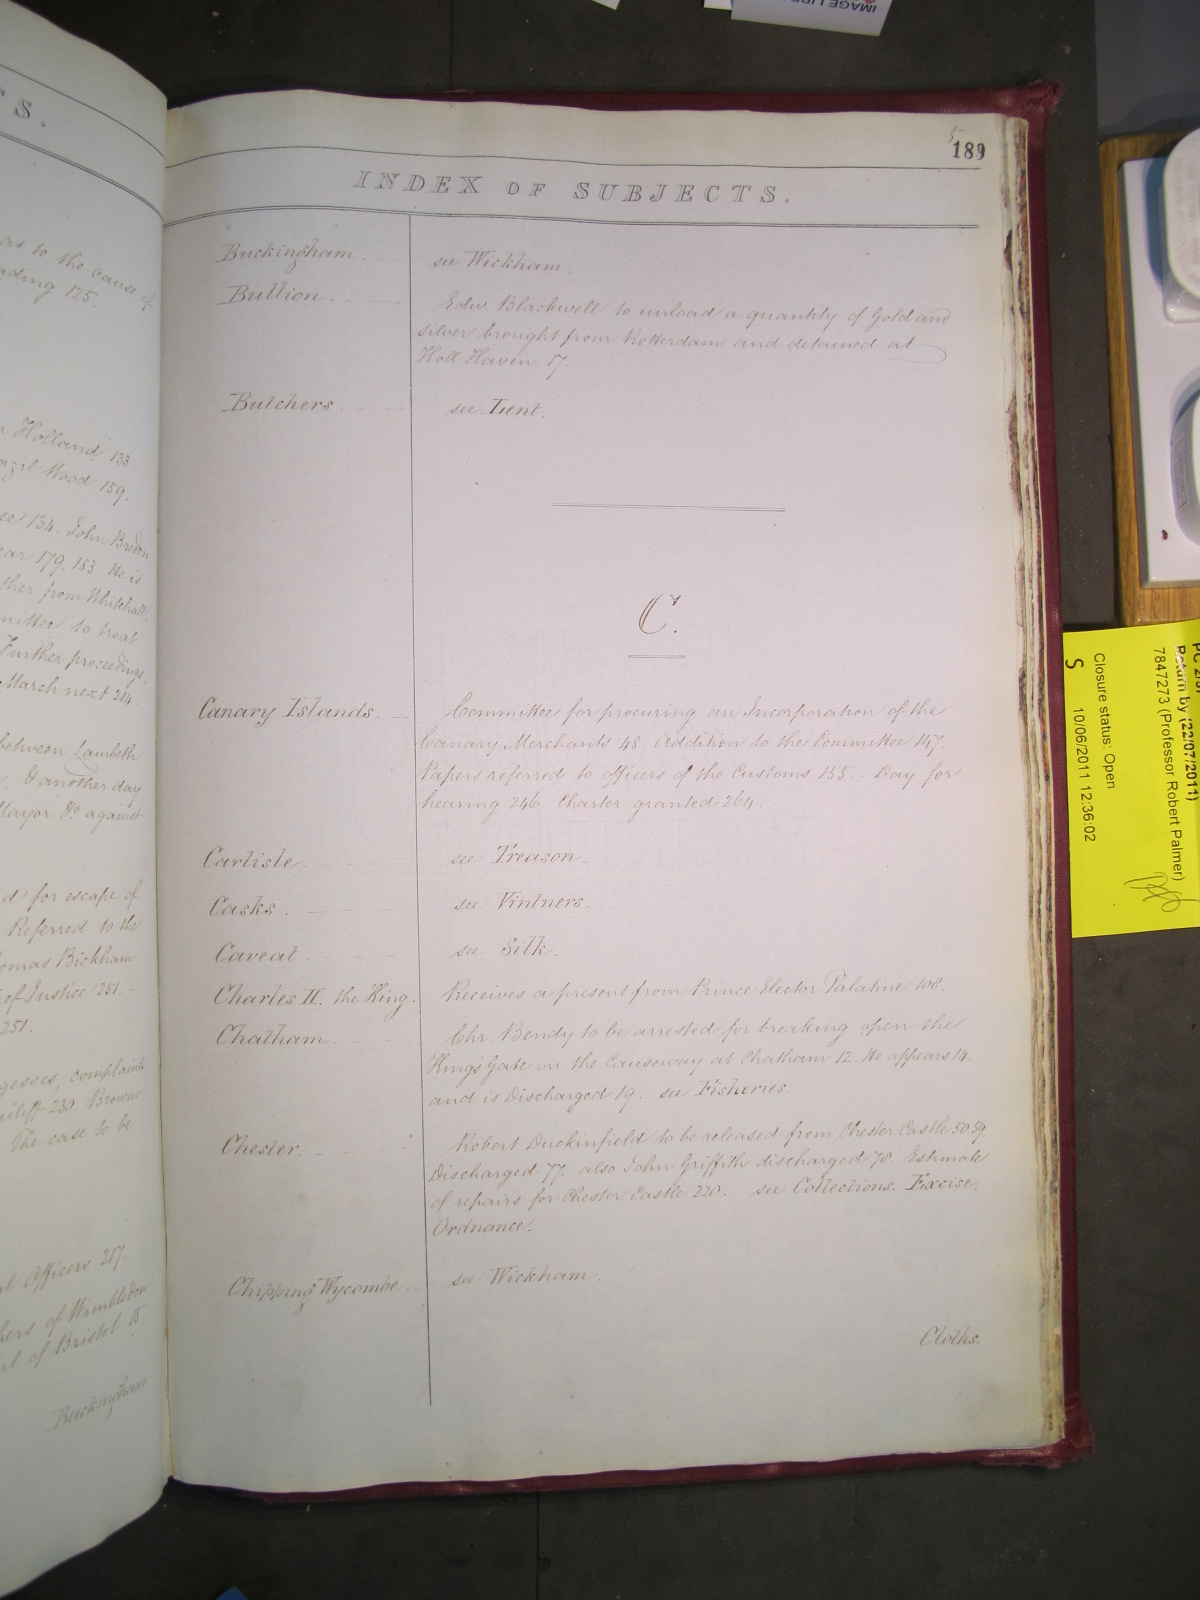 TS.
as to the cause of
ading 125.
n Holland 133.
azil Wood 159.
se 134. John Bredon
ear 179. 183. He is
ther from Whitehall,
mittee to treat
Further proceedings,
March next 214.
between Lambeth
s, & another day
Mayor &c against
d for escape of
Referred to the
omas Bickham
ief Justice 251. -
251.
gesses, complaint
ailiff 230. Browne
The case to be
al Officers 217.
hers of Wimbledon
rl of Bristol 15.
Buckingham
5
189
INDEX OF SUBJECTS.
Buckingham. see Wickham.
Bullion. Edw. Blackwell to unload a quantity of Gold and
silver brought from Rotterdam and detained at
Holl Haven 17.
Butchers. see Lent.
C.
Canary Islands. Committee for procuring an Incorporation of the
Canary Merchants 48. Addition to the Committee 147.
Papers referred to officers of the Customs 155. - Day for
hearing 246. Charter granted 264.
Carlisle see Treason.
Casks. see Vintners.
Caveat. see Silk.
Charles II. the King. Receives a present from Prince Elector Palatine 108.
Chatham. Chr. Bendy to be arrested for breaking open the
King's Gate on the Causeway at Chatham 12. He appears 14.
and is Discharged 19. see Fisheries.
Chester. Robert Duckinfield to be released from Chester Castle 50. 59.
Discharged 77. also John Griffith discharged 78. Estimate
of repairs for Chester Castle 220. see Collections. Excise.
Ordnance.
Chipping Wycombe. see Wickham.
Cloths.
IMAGE LIBR
PC 2/5
Return by (22/07/2011)
7847273 (Professor Robert Palmer)
Closure status: Open
10/06/2011 12:36:02
S